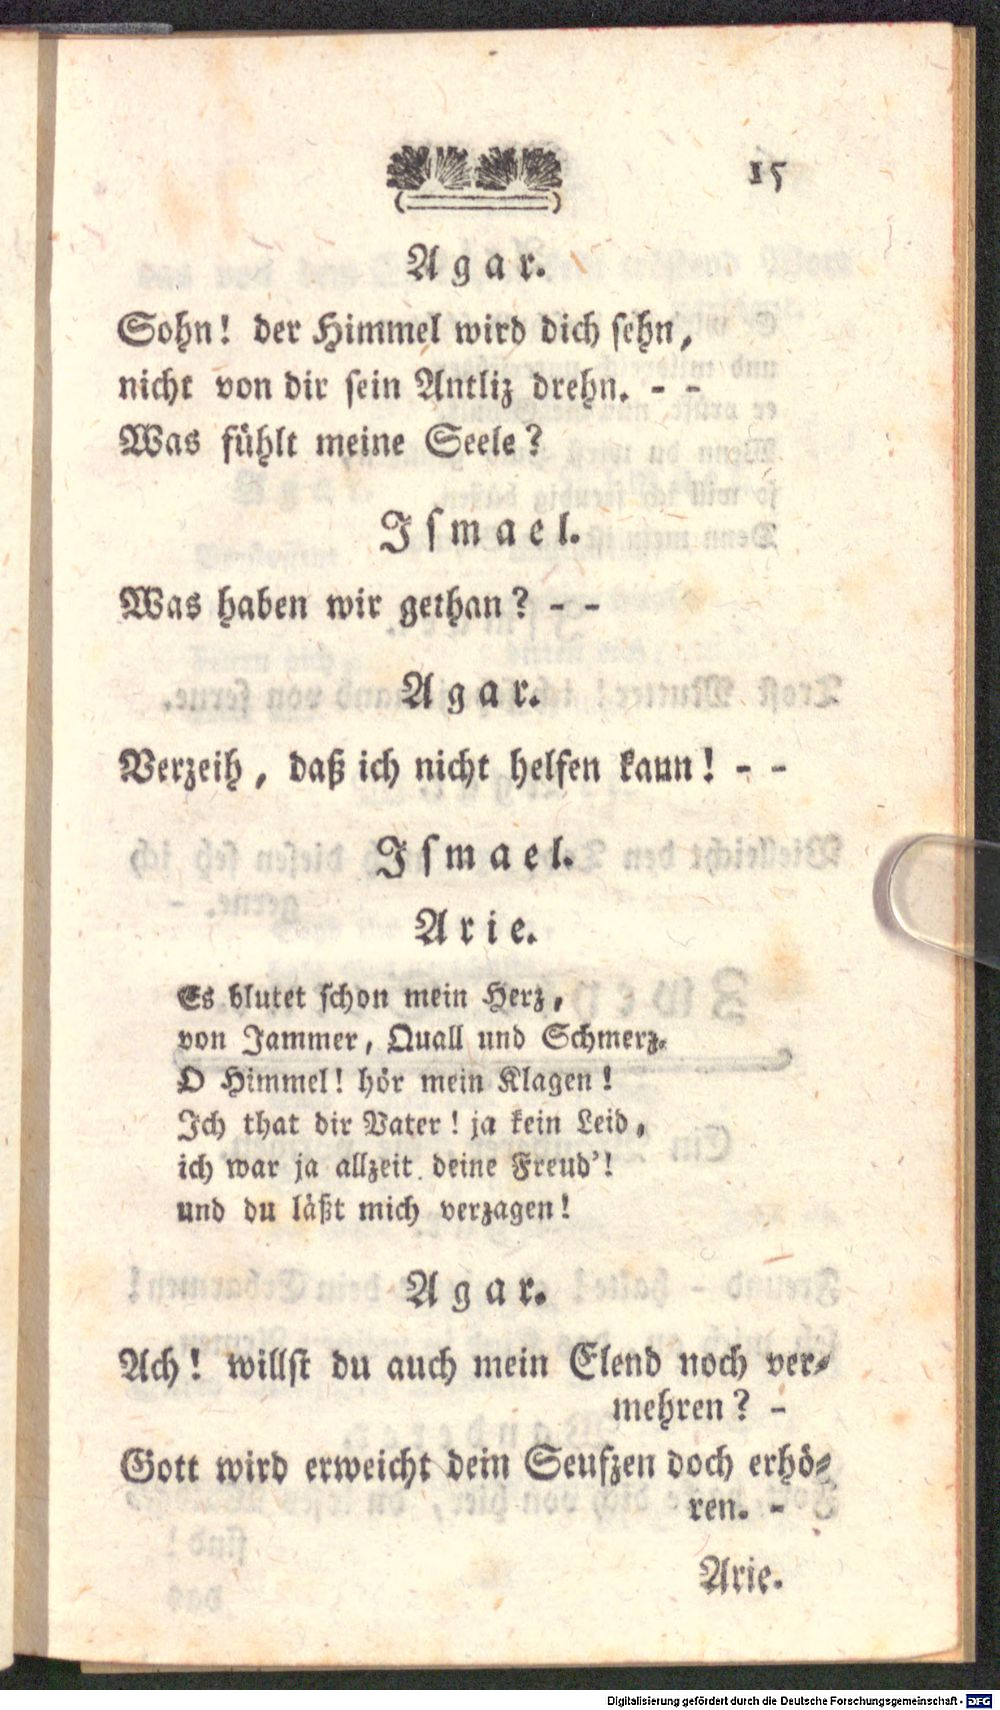 15
Agar.
Sohn! der Himmel wird dich sehn,
nicht von dir sein Antliz drehn. - -
Was fühlt meine Seele?
Ismael.
Was haben wir gethan? - -
Agar.
Verzeih, daß ich nicht helfen kann! - -
Ismael.
Arie.
Es blutet schon mein Herz,
von Jammer, Quall und Schmerz.
O Himmel! hör mein Klagen!
Ich that dir Vater! ja kein Leid,
ich war ja allzeit deine Freud'!
und du läßt mich verzagen!
Agar.
Ach! willst du auch mein Elend noch ver-
mehren? -
Gott wird erweicht dein Seufzen doch erhö-
ren. -
Arie.
Digitalisierung gefördert durch die Deutsche Forschungsgemeinschaft - DFG